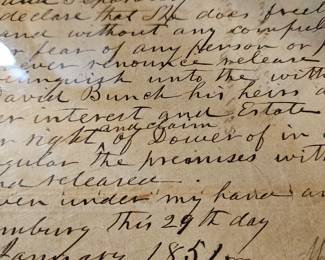 declare that She does freel
and without any compul
or fear of any person or p
ever renounce release
linquish unto the with
David Bunch his heirs a
er interest and Estate
and claim
er right of Dower of in
gular the premises with
nd released.
ven under my hand an
mburg this 29th day
January 1851